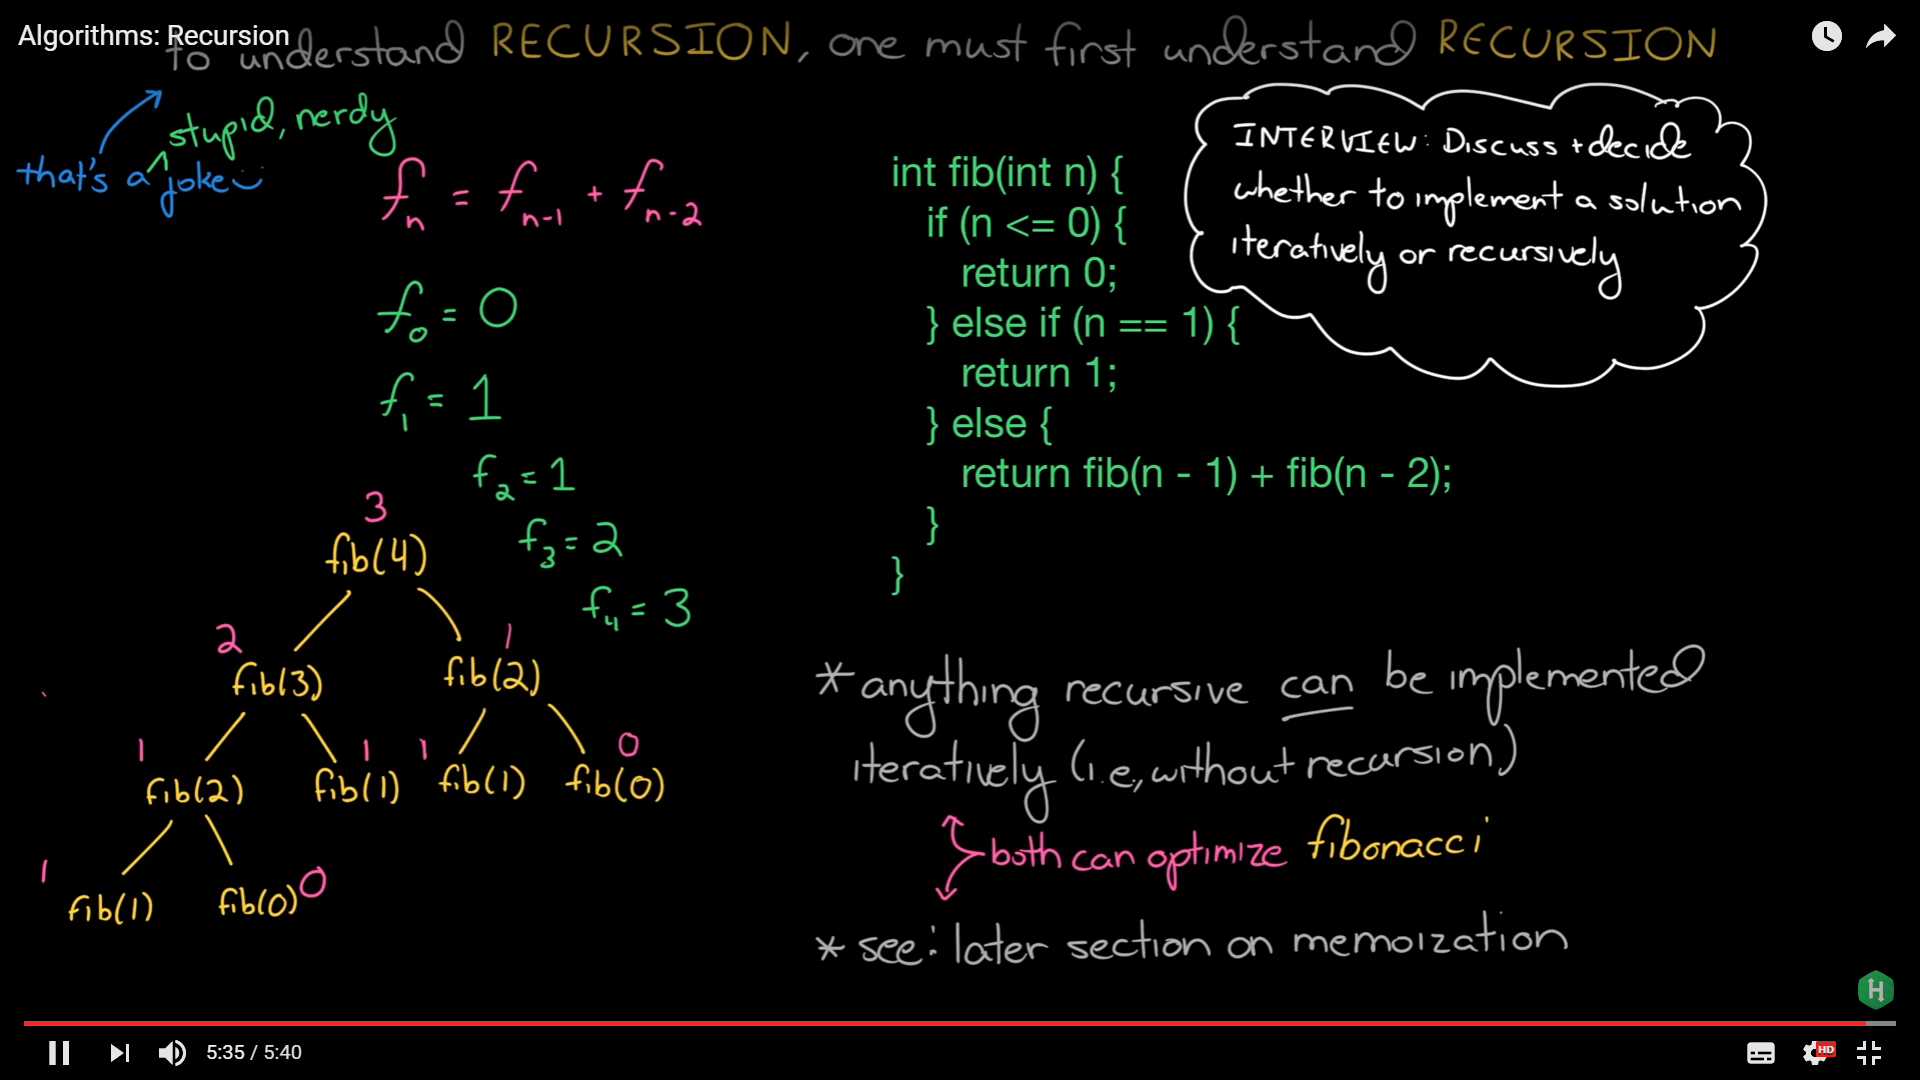 Algorithms: Recursion
To understand RECURSION, one must first understand RECURSION
stupid, nerdy
that's a joke
fn = fn-1 + fn-2
f0 = 0
f1 = 1
f2 = 1
f3 = 2
f4 = 3
3
fib(4)
2
1
fib(3)
fib(2)
1
1
1
0
fib(2)
fib(1)
fib(1)
fib(0)
1
0
fib(1)
fib(0)
int fib(int n) {
if (n <= 0) {
return 0;
} else if (n == 1) {
return 1;
} else {
return fib(n - 1) + fib(n - 2);
}
}
INTERVIEW: Discuss + decide
whether to implement a solution
iteratively or recursively
* anything recursive can be implemented
iteratively (i.e., without recursion)
both can optimize fibonacci
* see: later section on memoization
H
5:35 / 5:40
HD